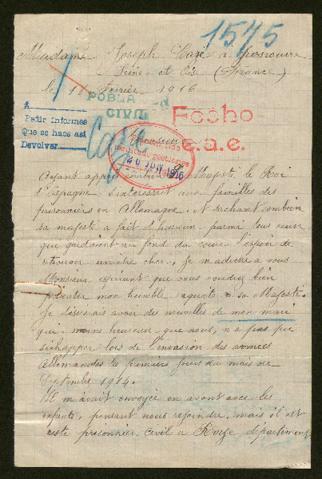 1575
Madame Joseph à
Seine et Oise (France)
le 11 Février 1916
POBLA
CIVIL
A
Pedir informes
Que se hace así
Devolver
Fecho
e.a.e.
Monsieur
20 JUN 1916
Ayant appris Majesté, le Roi
d'Espagne s'intéressait aux familles des
prisonniers en Allemagne. Et sachant combien
sa majesté a fait d'heureux parmi leur
qui gardaient au fond du cœur l'espoir de
retrouver un être cher, je m'adresse à vous
Monsieur espérant que vous voudrez bien
présenter mon humble requête à sa Majesté.
Je désirerais avoir des nouvelles de mon mari
qui moins heureux que nous, n'a pas pu
s'échapper lors de l'invasion des armées
Allemandes les premiers jours du mois de
Septembre 1914.
Il m'avait envoyée en avant avec les
enfants, pensant nous rejoindre, mais il est
resté prisonnier civil à département